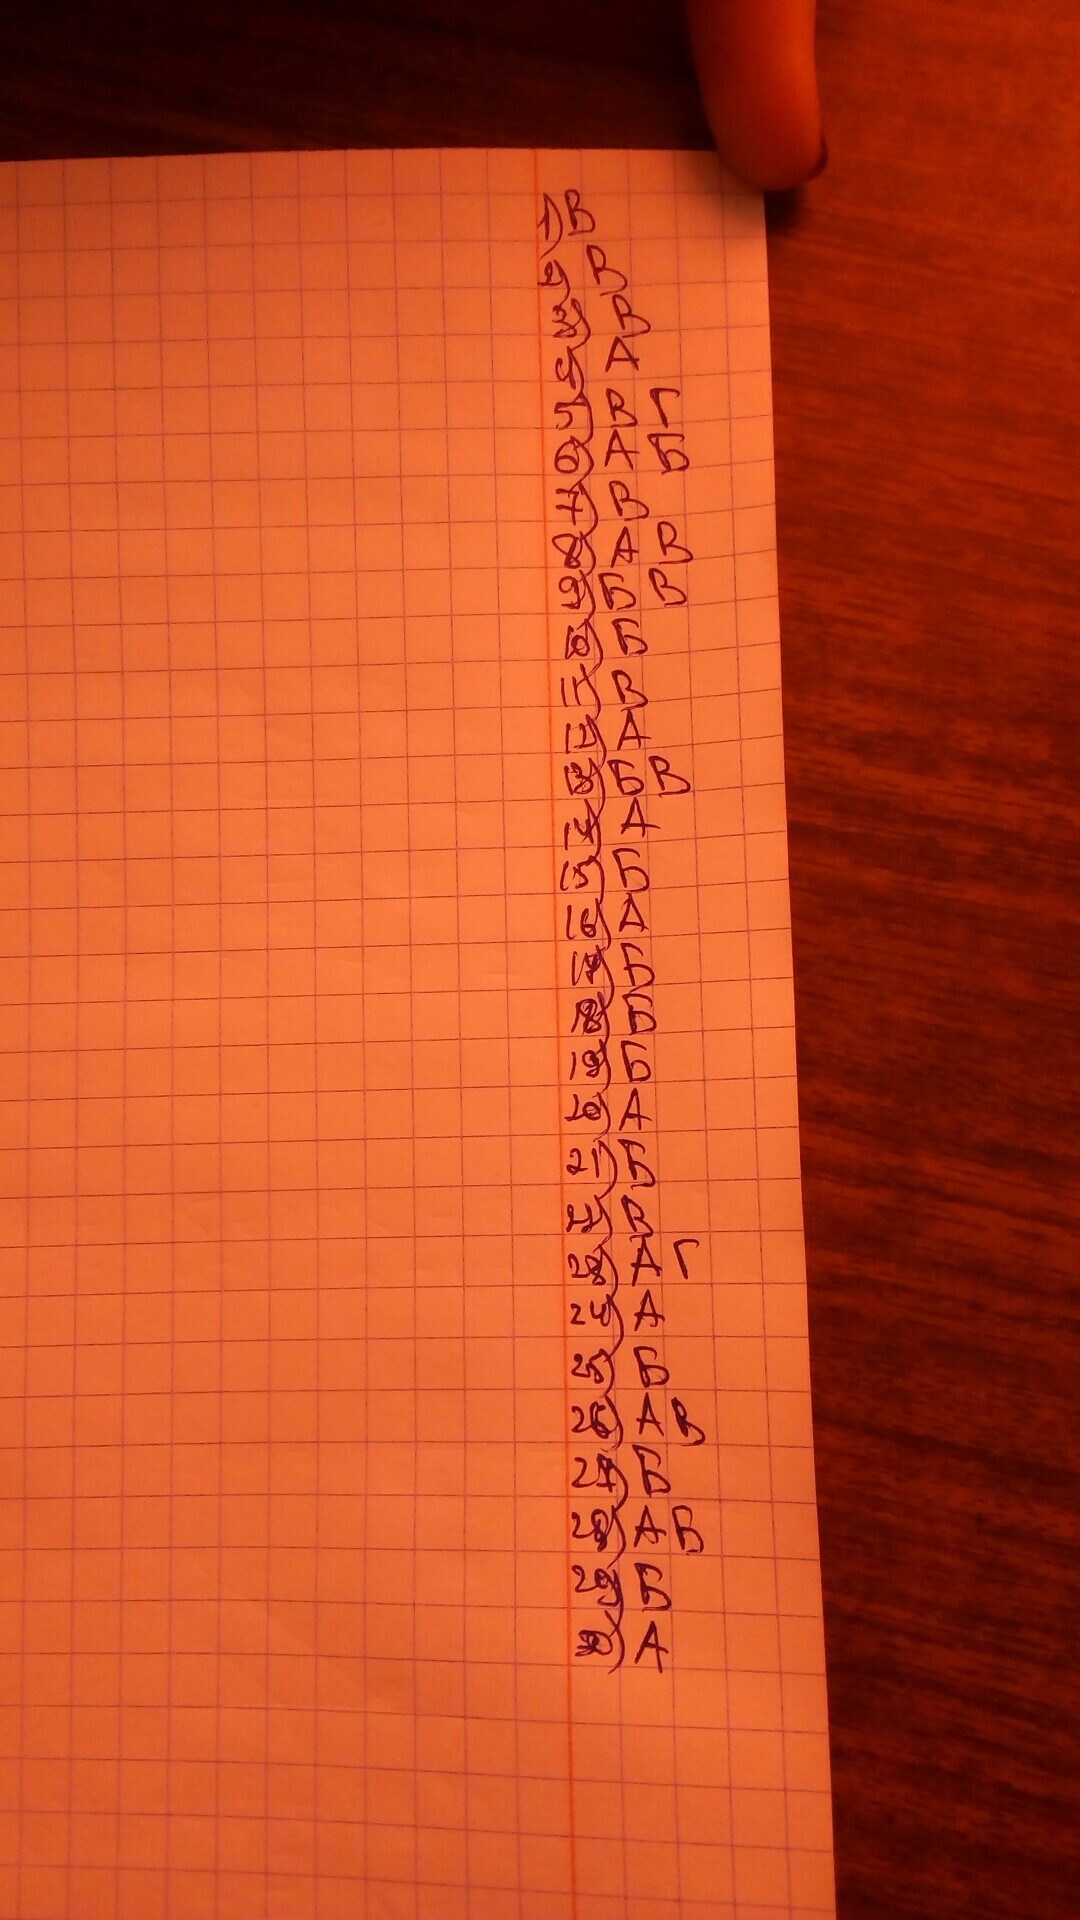 1) В
2) В
3) В
4) А
5) В Г
6) А Б
7) В
8) А В
9) Б В
10) Б
11) В
12) А
13) Б В
14) А
15) Б
16) А
17) Б
18) Б
19) Б
20) А
21) Б
22) В
23) А Г
24) А
25) Б
26) А В
27) Б
28) А Б
29) Б
30) А